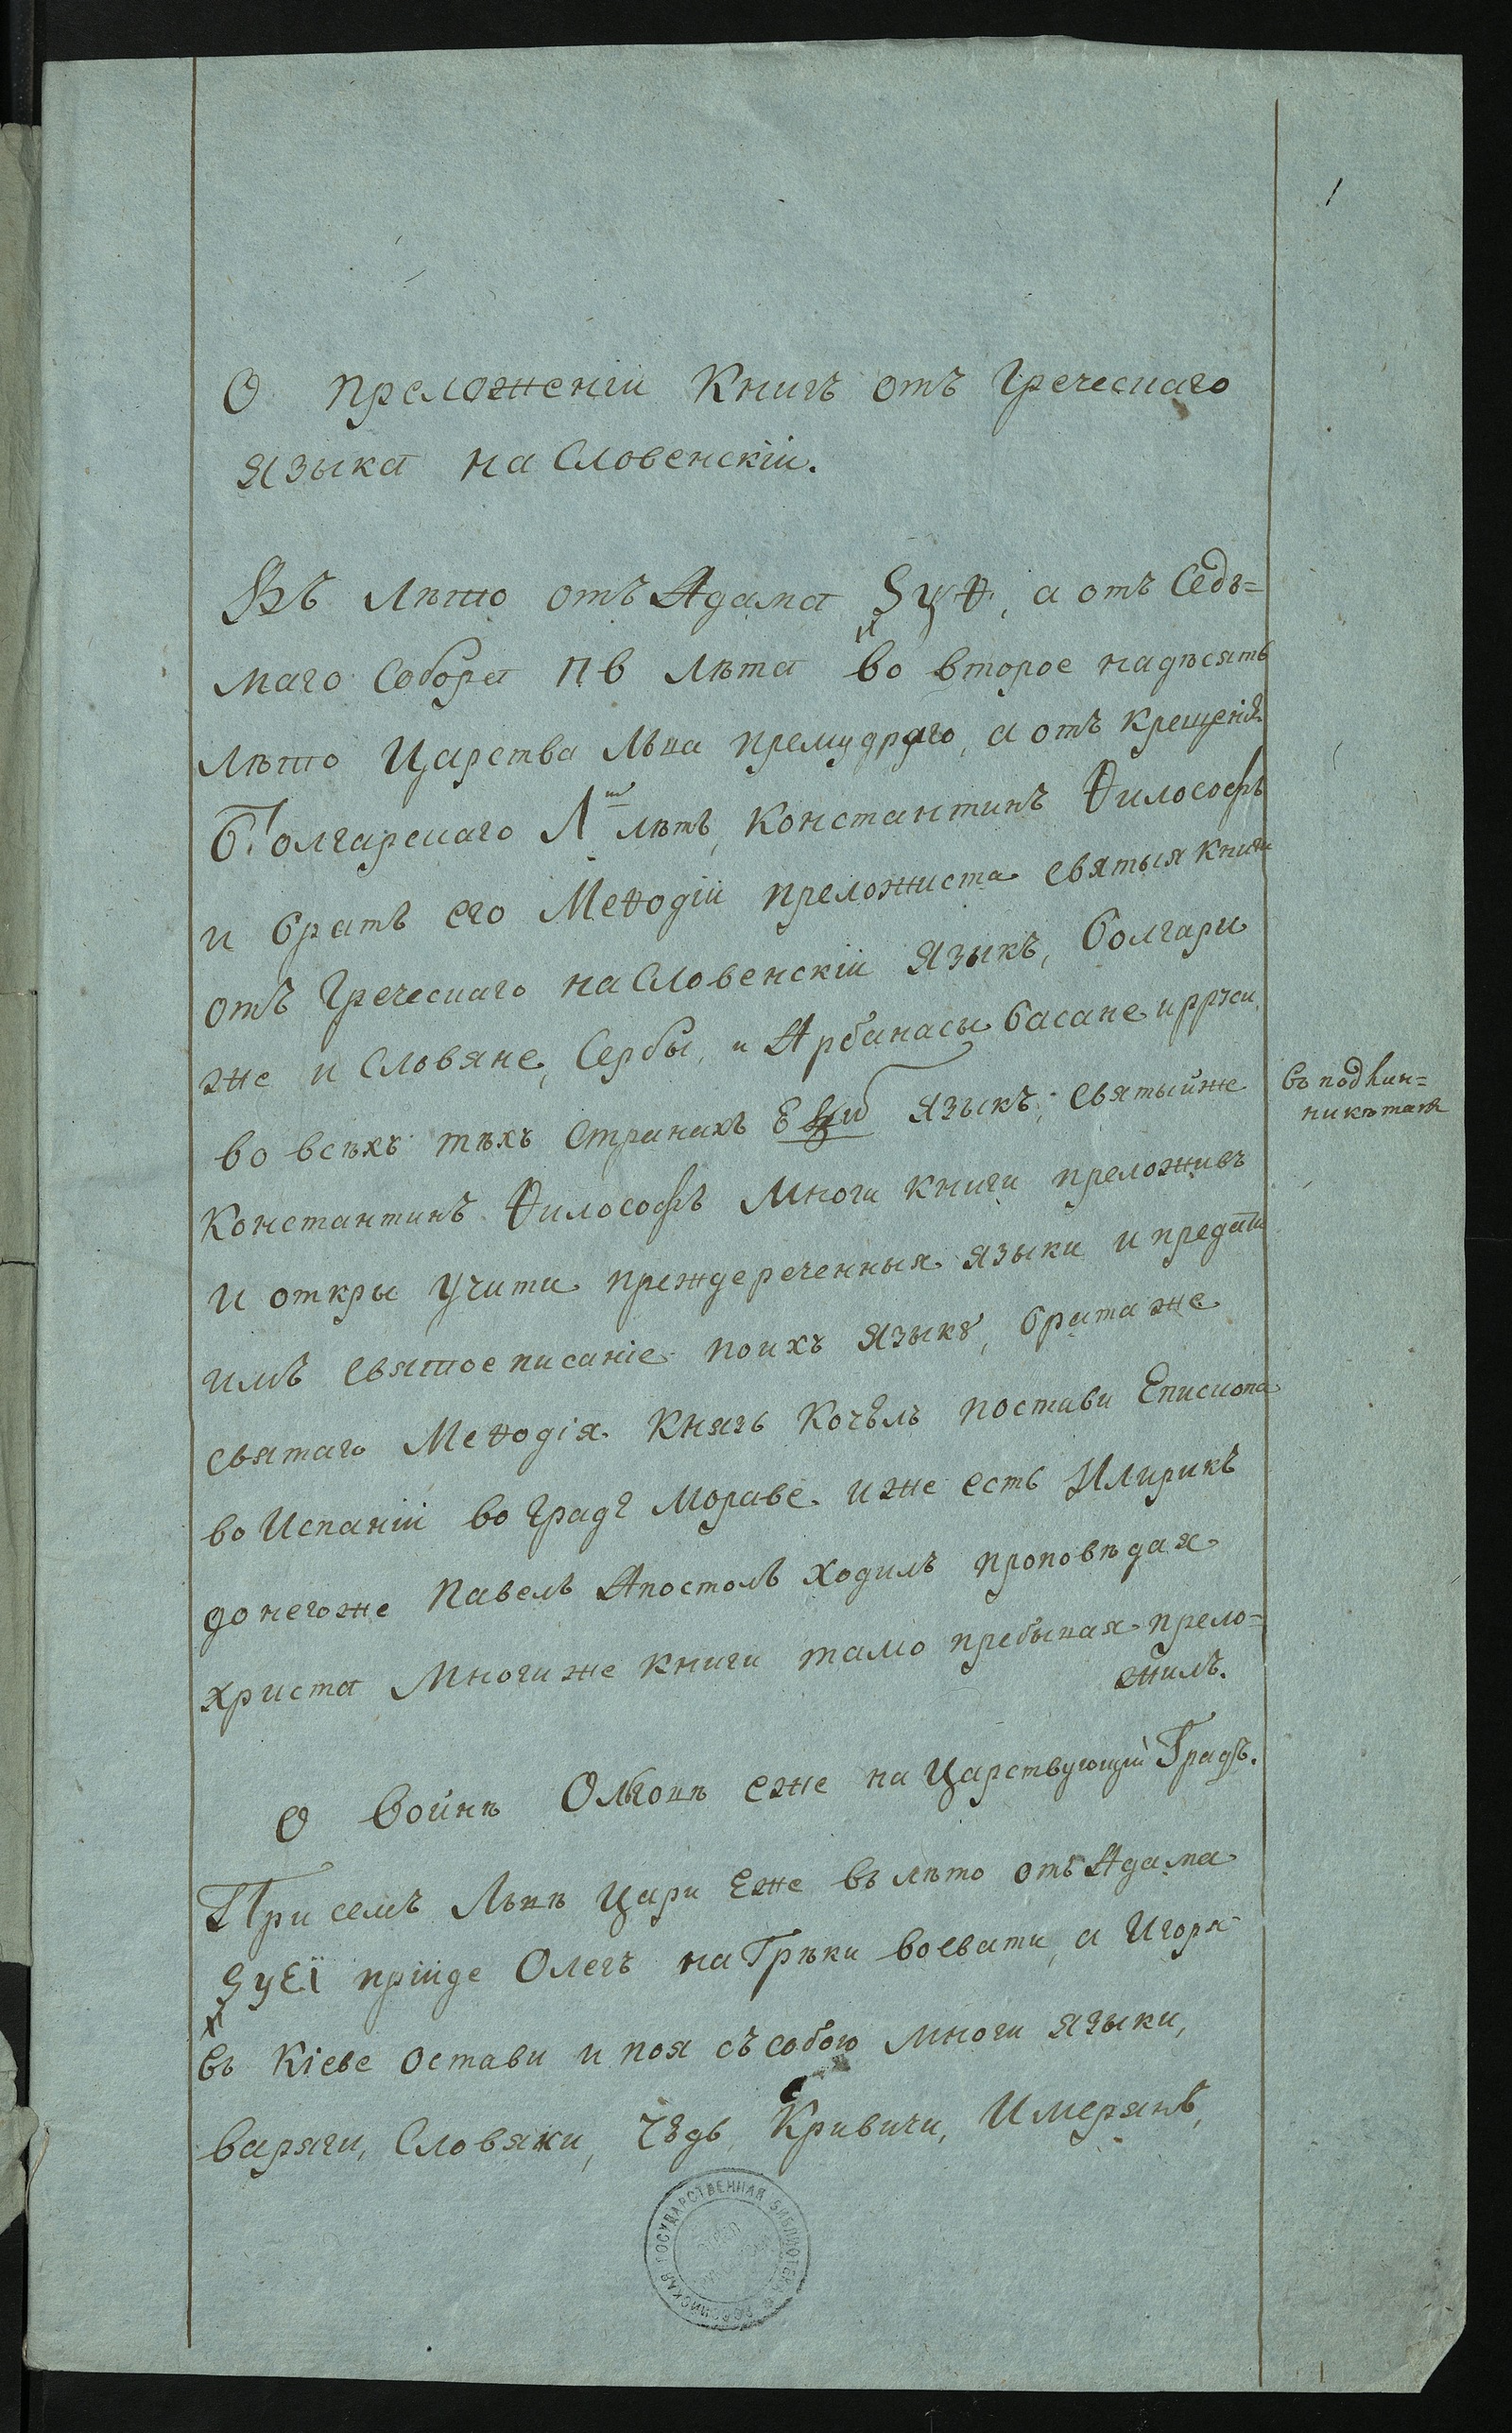 1
О преложеніи Книгъ отъ Греческаго
языка на Словенскіи.
Въ Лѣто отъ Адама ЅуѲ, а отъ Седь=
маго Собора ПВ лѣта и во второе надесять
лѣто Царства Льва премудраго, а отъ крещенія
Болгарскаго Л лѣтъ, Константинъ Ѳилософъ
и братъ его Меѳодіи преложиста святыя книги
отъ Греческаго на Словенскіи языкъ, болгари
же и Словяне, Сербы, и Арбанасы басане и рꙋси,
во всѣхъ тѣхъ странахъ языкъ; святыйже
въ подлин=
никѣ такъ
Константинъ Ѳилософъ многи книги преложивъ
и откры учити преждереченныя языки и предати
имъ святое писаніе по ихъ языкꙋ, брата же
святаго Меѳодія Князь Кочелъ постави Епископа
во Испаніи во граде Мораве иже есть Илирикъ
донегоже Павелъ Апостолъ ходилъ проповѣдая
христа многи же книги тамо пребывая прело=
жилъ.
О войнѣ Ольговѣ еже на Царствующій Градъ.
При семъ Львѣ Цари еже въ лѣто отъ Адама
ЅуЕі пріиде Олегъ на Грѣки воевати, а Игоря
въ Кіеве остави и поя съ собою многи языки,
варяги, Словяни, Чꙋдь, Кривичи, И мерянъ,
РОССИЙСКАЯ ГОСУДАРСТВЕННАЯ БИБЛИОТЕКА